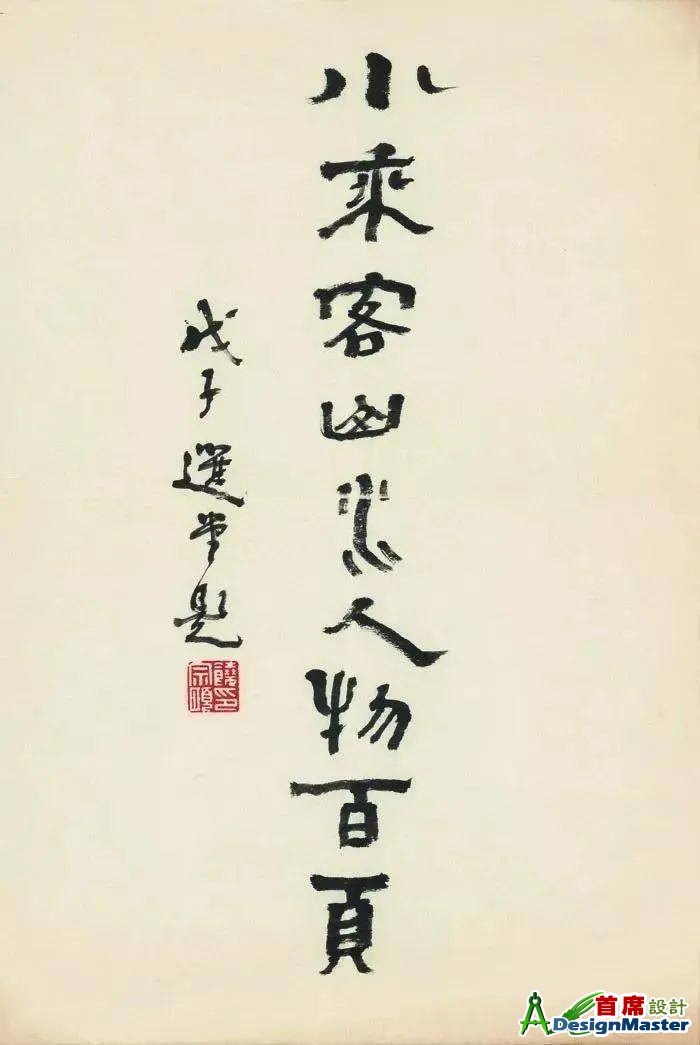 小乘客山水人物百頁
戊子選堂題
饒印宗頤
首席設計
DesignMaster